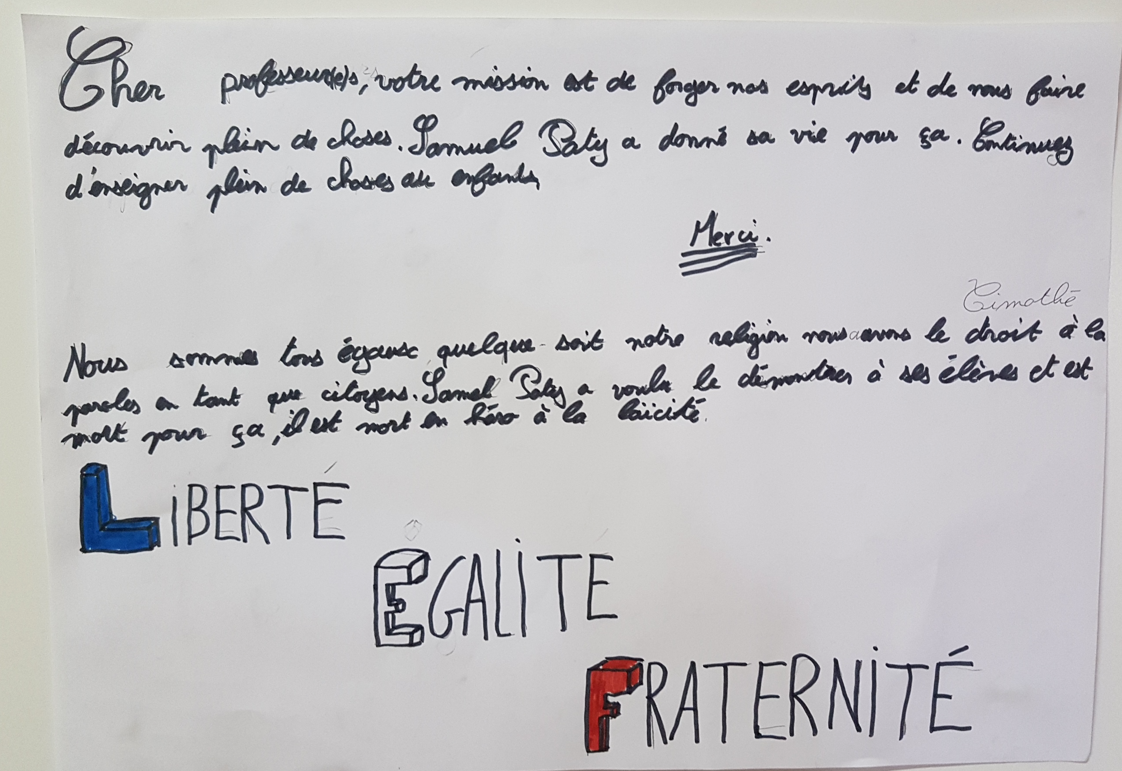 Cher professeur(e)s, votre mission est de forger nos esprits et de nous faire
découvrir plein de choses. Samuel Paty a donné sa vie pour ça. Continuez
d'enseigner plein de choses au enfants
Merci.
Timothé
Nous sommes tous égaux quelque soit notre religion nous avons le droit à la
paroles en tant que citoyens. Samel Paty a voulu le démontrer à ses élèves et est
mort pour ça, il est mort en héro à la laïcité.
LiBERTÉ
EGALiTE
FRATERNiTÉ